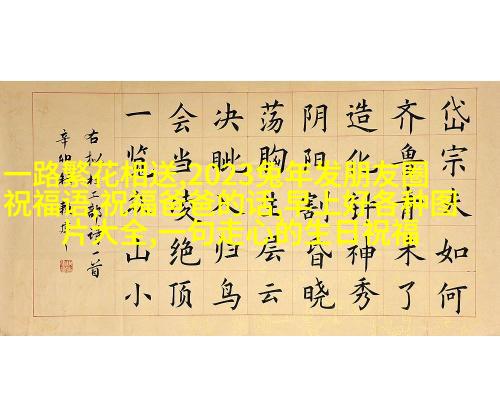 岱宗夫如何
齐鲁青未了
造化钟神秀
阴阳割昏晓
荡胸生层云
决眦入归鸟
会当凌绝顶
一览众山小
右杜工部诗一首
辛卯
一路繁花相送,2023兔年发朋友圈
祝福语,祝福爸爸的话,早上好各种图
片大全,一句走心的生日祝福